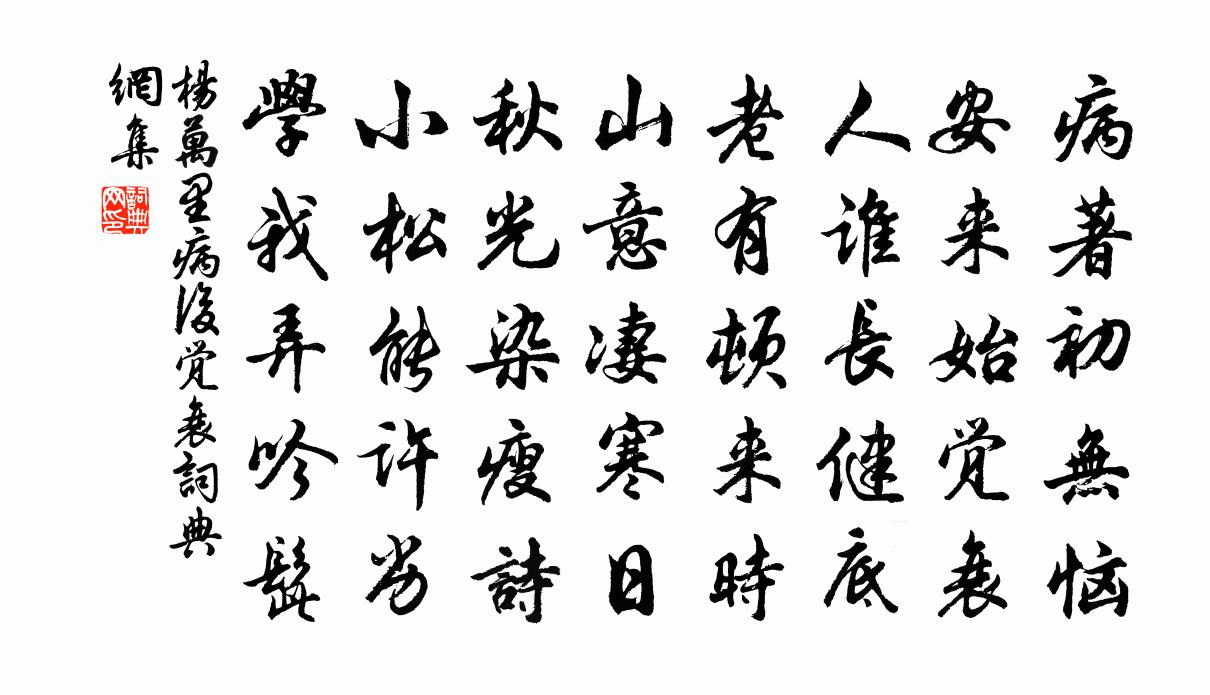 病著初無惱
安来始觉衰
人誰長健底
老有頓来時
山意凄寒日
秋光染瘦詩
小松能許劣
學我弄吟髭
楊萬里病後觉衰詞典
網集
詞典
网印